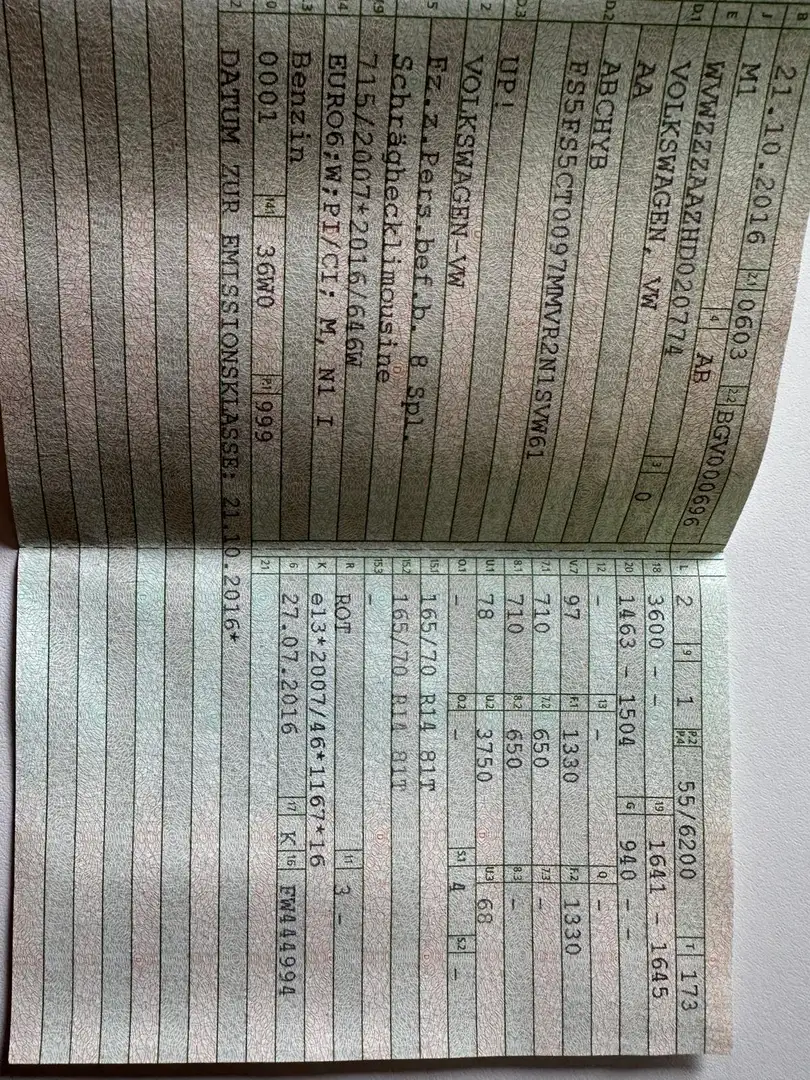 B 21.10.2016 2.1 0603 2.2 BGV000696
J M1 4 AB
E WVWZZZAAZHD020774 3 0
D.1 VOLKSWAGEN, VW
AA
D.2 ABCHYB
FS5FS5CT0097MMVR2N1SVW61
D.3 UP!
2 VOLKSWAGEN-VW
5 Fz.z.Pers.bef.b. 8 Spl.
Schräghecklimousine
V.9 715/2007*2016/646W
14 EURO6;W;PI/CI; M, N1 I
P.3 Benzin
10 0001 14.1 36W0 P.1 999
22 DATUM ZUR EMISSIONSKLASSE: 21.10.2016*
L 2 9 1 P.2 P.4 55/6200 T 173
18 3600 - - 19 1641 - 1645
20 1463 - 1504 G 940 - -
12 - 13 - Q -
V.7 97 F.1 1330 F.2 1330
7.1 710 7.2 650 7.3 -
8.1 710 8.2 650 8.3 -
U.1 78 U.2 3750 U.3 68
O.1 - O.2 - S.1 4 S.2 -
15.1 165/70 R14 81T
15.2 165/70 R14 81T
15.3 -
R ROT 11 3 -
K e13*2007/46*1167*16
6 27.07.2016 17 K 16 FW444994
21